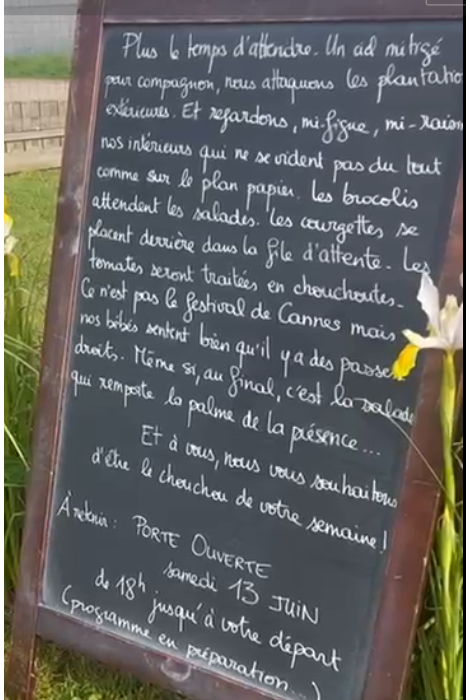 Plus le temps d'attendre. Un ciel mitigé
pour compagnon, nous attaquons les plantatio
extérieures. Et regardons, mi-figue, mi-raisin
nos intérieurs qui ne se vident pas du tout
comme sur le plan papier. Les brocolis
attendent les salades. Les courgettes se
placent derrière dans la file d'attente. Les
tomates seront traitées en chouchoutes.
Ce n'est pas le festival de Cannes mais
nos bébés sentent bien qu'il y a des passe
droits. Même si, au final, c'est la salade
qui remporte la palme de la présence...
Et à vous, nous vous souhaitons
d'être le chouchou de votre semaine !
À retenir : PORTE OUVERTE
samedi 13 JUIN
de 18h jusqu'à votre départ
(programme en préparation...)